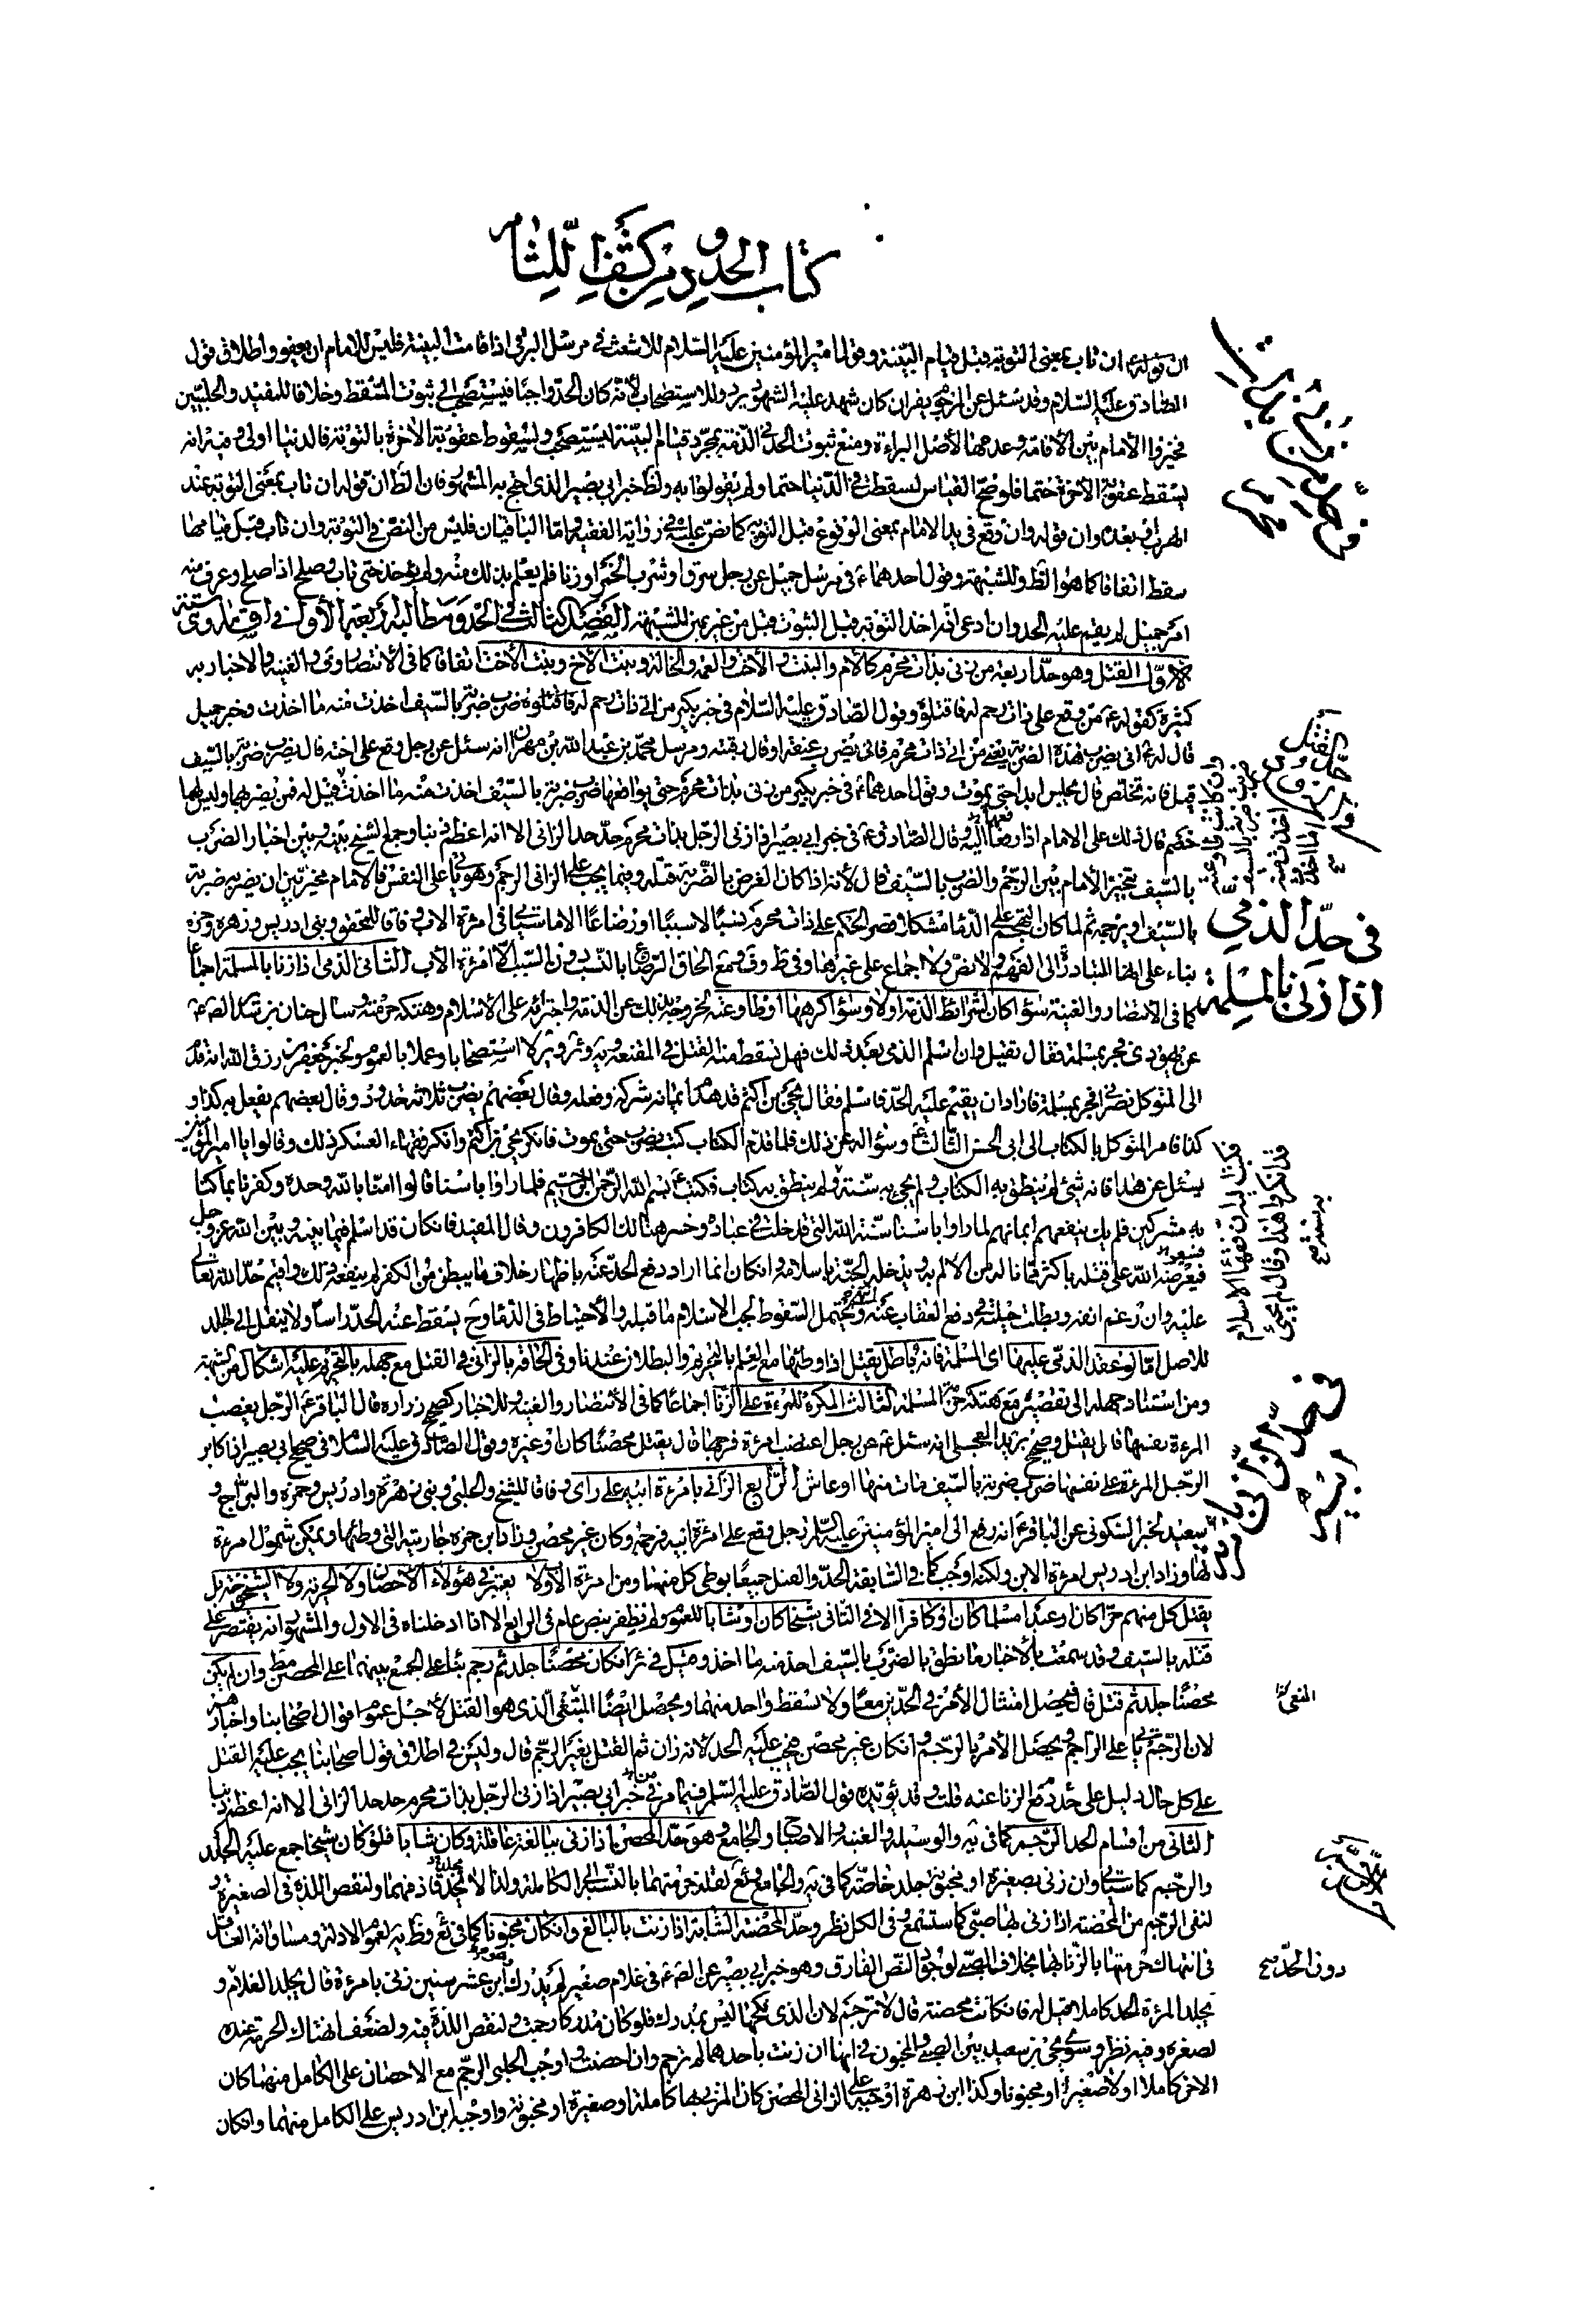 كتاب الحدود من كشف اللثام
ان قوله ان تاب بمعنى التوبة قبل قيام البينة وقول امير المؤمنين عليه السلام للاشعث في مرسل البرقي اذا قامت البينة فليس للامام ان يعفو واطلاق قول
الصادق عليه السلام وقد سئل عن المرجوم يفر ان كان شهد عليه الشهود يرد وللاستصحاب لأنه كان الحد واجبا فيستصحب الى ثبوت المسقط وخلافا للمفيد والحلبيين
فخيروا الامام بين الاقامة وعدمها لأصل البراءة ومنع ثبوت الحد في الذمة بمجرد قيام البينة ليستصحب ولسقوط عقوبة الاخرة بالتوبة فالدنيا اولى وفيه انه
يسقط عقوبة الاخرة حتما فلو صح القياس لسقطت في الدنيا حتما ولم يقولوا به ولظ خبر ابي بصير الذي احتج به المشهور فان الظ ان قوله ان تاب بمعنى التوبة عند
الهرب وبعده وان قوله وان وقع في يد الامام بمعنى الوقوع قبل التوبة كما نص عليه في رواية الفقيه واما الباقيان فليس من النص في التوبة وان تاب قبل قيامها
سقط اتفاقا كما هو الظ وللشبهة وقول احدهما ع في مرسل جميل عن رجل سرق او شرب الخمر او زنا فلم يعلم بذلك منه ولم يؤخذ حتى تاب وصلح اذا صلح وعرف منه
امر جميل لم يقم عليه الحد وان ادعى انه اخذ التوبة قبل الثبوت قبل من غير يمين للشبهة الفصل الثالث في الحد ومطالبه اربعة الأول في اقسامه وهي ستة
الاول القتل وهو حد اربعة من زنى بذات محرم كالام والبنت والاخت والعمة والخالة وبنت الاخ وبنت الاخت اتفاقا كما في الانتصار وى والغنية والاخبار به
كثيرة كقوله ع من وقع على ذات رحم له فاقتلوه وقول الصادق عليه السلام في خبر بكير من اتى ذات رحم له فاقتلوه ضرب ضربة بالسيف اخذت منه ما اخذت وخبر جميل
قال له ع اني يضرب هذه الضربة يعني من اتى ذات محرم قال يضرب عنقه او قال رقبته ومرسل محمد بن عبد الله بن مهران انه سئل عن رجل وقع على اخته قال يضرب ضربة بالسيف
قيل فانه تخلص قال يحبس ابدا حتى يموت وقول احدهما ع في خبر بكير من زنى بذات محرم حتى يواقعها ضرب ضربة بالسيف اخذت منه ما اخذت قيل له فمن يضربهما وليس لهما
خصم قال ذلك على الامام اذا رفعا اليه وقال الصادق ع في خبر ابي بصير اذا زنى الرجل بذات محرم حد حد الزاني الا انه اعظم ذنبا وجمع الشيخ بينه وبين اخبار الضرب
بالسيف بتخير الامام بين الرجم والضرب بالسيف قال لأنه اذا كان الغرض بالضربة قتله وفيما يجب على الزاني الرجم وهو يأتي على النفس فالامام مخير بين ان يضربه ضربة
بالسيف او يرجمه ثم لما كان التهجم على الدماء مشكلا قصر الحكم على ذات محرم نسبا لا سببا او رضاعا الا ما سيأتي في امرئة الاب وفاقا للمحقق وبني ادريس وزهرة وحمزة
بناء على انها المتبادرة الى الفهم ولا نص ولا اجماع على غيرها وفي ظ وف وط وتع الحاق الرضاع بالنسب دون السبب الا امرئة الأب الثاني الذمي اذا زنا بالمسلمة اجماعا
كما في الانتصار والغنية سواء كان لشرائط الذمة اولا وسواء اكرهها او طاوعته لخروجه بذلك عن الذمة واجترائه على الاسلام وهتكه حرمته وسال حنان بن سدير الصادق ع
عن يهودي فجر بمسلمة فقال يقتل وان اسلم الذمي بعد ذلك فهل يسقط منه القتل في المقنعة ويه وئر وير لا استصحابا وعملا بالعموم ولخبر جعفر بن رزق الله انه قدم
الى المتوكل نصراني فجر بمسلمة فاراد ان يقيم عليه الحد فاسلم فقال يحيى بن اكثم قد هدم ايمانه شركه وفعله وقال بعضهم يضرب ثلاثة حدود وقال بعضهم يفعل به كذا و
كذا فامر المتوكل بالكتاب الى ابي الحسن الثالث ع وسؤاله عن ذلك فلما قدم الكتاب كتب يضرب حتى يموت فانكر يحيى بن اكثم وانكر فقهاء العسكر ذلك وقالوا يا امير المؤمنين
يسئل عن هذا فانه شئ لم ينطق به الكتاب ولم يجئ به سنة ولم ينطق به كتاب فكتب ع بسم الله الرحمن الرحيم فلما راوا باسنا قالوا امنا بالله وحده وكفرنا بما كنا
به مشركين فلم يك ينفعهم ايمانهم لما راوا باسنا سنة الله التي قد خلت في عباده وخسر هنالك الكافرون وقال المفيد فان كان قد اسلم فيما بينه وبين الله عز وجل
فيعوضه الله على قتله باكثر مما ناله من الالم به ويدخله الجنة باسلامه وان كان انما اراد دفع الحد عنه باظهار خلاف ما يبطن من الكفر لم ينفعه ذلك واقيم حد الله تعالى
عليه وان رغم انفه وبطلت حيلته في دفع العقاب عنه ويحتمل السقوط لجب الاسلام ما قبله والاحتياط في الدماء وح يسقط عنه الحد راسا ولا ينتقل الى الجلد
للاصل اما لو عقد الذمي عليها اى المسلمة فانه باطل يقتل اذا وطئها مع العلم بالتحريم والبطلان عندنا وفي الحاقه بالزاني في القتل مع جهله بالتحريم عليه اشكال من الشبهة
ومن استناد جهله الى تقصيره مع هتكه حرمة المسلمة الثالث المكره للمرءة على الزنا اجماعا كما في الانتصار والغنية وللاخبار كصحيح زرارة قال للباقر ع الرجل يغصب
المرءة نفسها قال يقتل وصحيح بريد العجلي انه سئل ع عن رجل اغتصب امرئة فرجها قال يقتل محصنا كان او غيره وقول الصادق عليه السلام في صحيح ابي بصير اذا كابر
الرجل المرءة على نفسها ضرب ضربة بالسيف مات منها او عاش الرابع الزاني بامرئة ابيه على راى وفاقا للشيخ والحلبي وبني زهرة وادريس وحمزة والبراج و
سعيد لخبر السكوني عن الباقر ع انه رفع الى امير المؤمنين عليه السلام رجل وقع على امرئة ابيه فرجمه وكان غير محصن وزاد ابن حمزة جارية ابيه التي وطئها ويمكن شمول امرءة
لها وزاد ابن ادريس امرئة الابن ولكنه اوجب كما في السابقة الحد والقتل جميعا بوطي كل منهما ومن امرءة الاب ولا يعتبر في هؤلاء الاحصان ولا الحرية ولا الشيخوخة بل
يقتل كل منهم حرا كان او عبدا مسلما كان او كافرا الا في الثاني شيخا كان او شابا للعموم ولم نظفر بنص عام في الرابع الا انا ادخلناه في الاول والمشهور انه يقتصر على
قتله بالسيف وقد سمعت بالأخبار ما نطق بالضرب بالسيف اخذ منه ما اخذ وقيل في ئر ان كان محصنا جلد ثم رجم بناء على الجمع بينهما على المحصن مط وان لم يكن
محصنا جلد ثم قتل قال فيحصل امتثال الأمر في الحدين معا ولا يسقط واحد منهما ويحصل ايضا المبتغى الذي هو القتل لأجل عموم اقوال اصحابنا واخبارهم
لان الرجم يأتي على الراجم ويحصل الأمر بالرجم وان كان غير محصن فيجب عليه الحد لانه زان ثم القتل بغير الرجم قال وليس في اطلاق قول اصحابنا يجب عليه القتل
على كل حال دليل على رفع حد الزنا عنه قلت وقد يؤيده قول الصادق عليه السلم فيما مر من خبر ابي بصير اذا زنى الرجل بذات محرم حد حد الزاني الا انه اعظم ذنبا
الثاني من اقسام الحد الرجم كما في يه والوسيلة والغنية والاصباح والجامع وهو حد المحصن اذا زنى ببالغة عاقلة وكان شابا فلو كان شيخا جمع عليه الجلد
والرجم كما سيأتي وان زنى بصغيرة او مجنونة جلد خاصة كما في يه والجامع وئع لقلة حرمتهما بالنسبة الى الكاملة ولذا لا يحد قاذفهما ولنقص اللذة في الصغيرة و
لنفي الرجم من المحصنة اذا زنى بها صبي كما ستسمع وفي الكل نظر وحد المحصنة الشابة اذا زنت بالبالغ وان كان مجنونا كما في ئع وظ يه لعموم الادلة ومساواته العاقل
في انتهاك حرمتها بالزنا بها بخلاف الصبي لوجود النص الفارق وهو خبر ابي بصير عن الصادق ع في غلام صغير لم يدرك ابن عشر سنين زنى بامرءة قال يجلد الغلام و
يجلد المرءة الحد كاملا قيل له فان كانت محصنة قال لا ترجم لان الذي نكحها ليس بمدرك فلو كان مدركا رجمت ولنقص اللذة فيه ولضعف انهتاك الحرمة عنده
لصغره وفيه نظر وسوى يحيى بن سعيد بين الصبي والمجنون في انها ان زنت باحدهما لم ترجم وان احصنت واوجب الحلبي الرجم مع الاحصان على الكامل منهما كان
الاخر كاملا او لا صغيرا او مجنونا وكذا ابن زهرة اوجبه على الزاني المحصن كان المزني بها كاملة او صغيرة او مجنونة واوجبه ابن ادريس على الكامل منهما وان كان
في حد من زنى بذات محرم
القتل
في حد الذمي
اذا زنى بالمسلمة
فكتب اليه ان فقهاء الاسلام
قد انكروا هذا وقال لم يجئ
به سنة
في حد الزاني بامرءة
ابيه
المنفي
الرجم
دون الحد